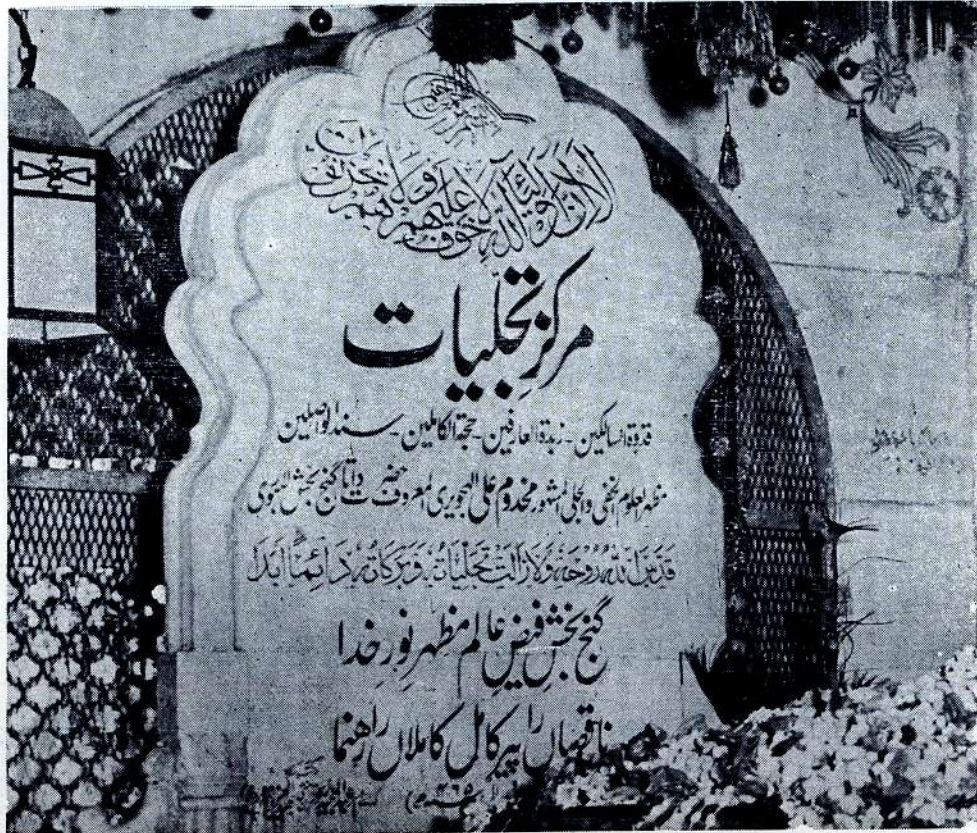 بسم اللہ الرحمن الرحیم
الا ان اولیاء اللہ لا خوف علیهم ولا هم یحزنون
مرکزِ تجلیات
قدوۃ السالکین - زبدۃ العارفین - حجۃ الکاملین - سند الواصلین
مظہر العلوم الخفی والجلی المشہور مخدوم علی الہجویری المعروف حضرت داتا گنج بخش الہجویری
قَدَّسَ اللّٰهُ رُوْحَهٗ وَلَا زَالَتْ تَجَلِّیَاتُهٗ وَبَرَکَاتُهٗ دَائِمًا اَبَدًا
گنج بخشِ فیضِ عالم مظہرِ نورِ خدا
ناقصاں را پیرِ کامل کاملاں را رہنما